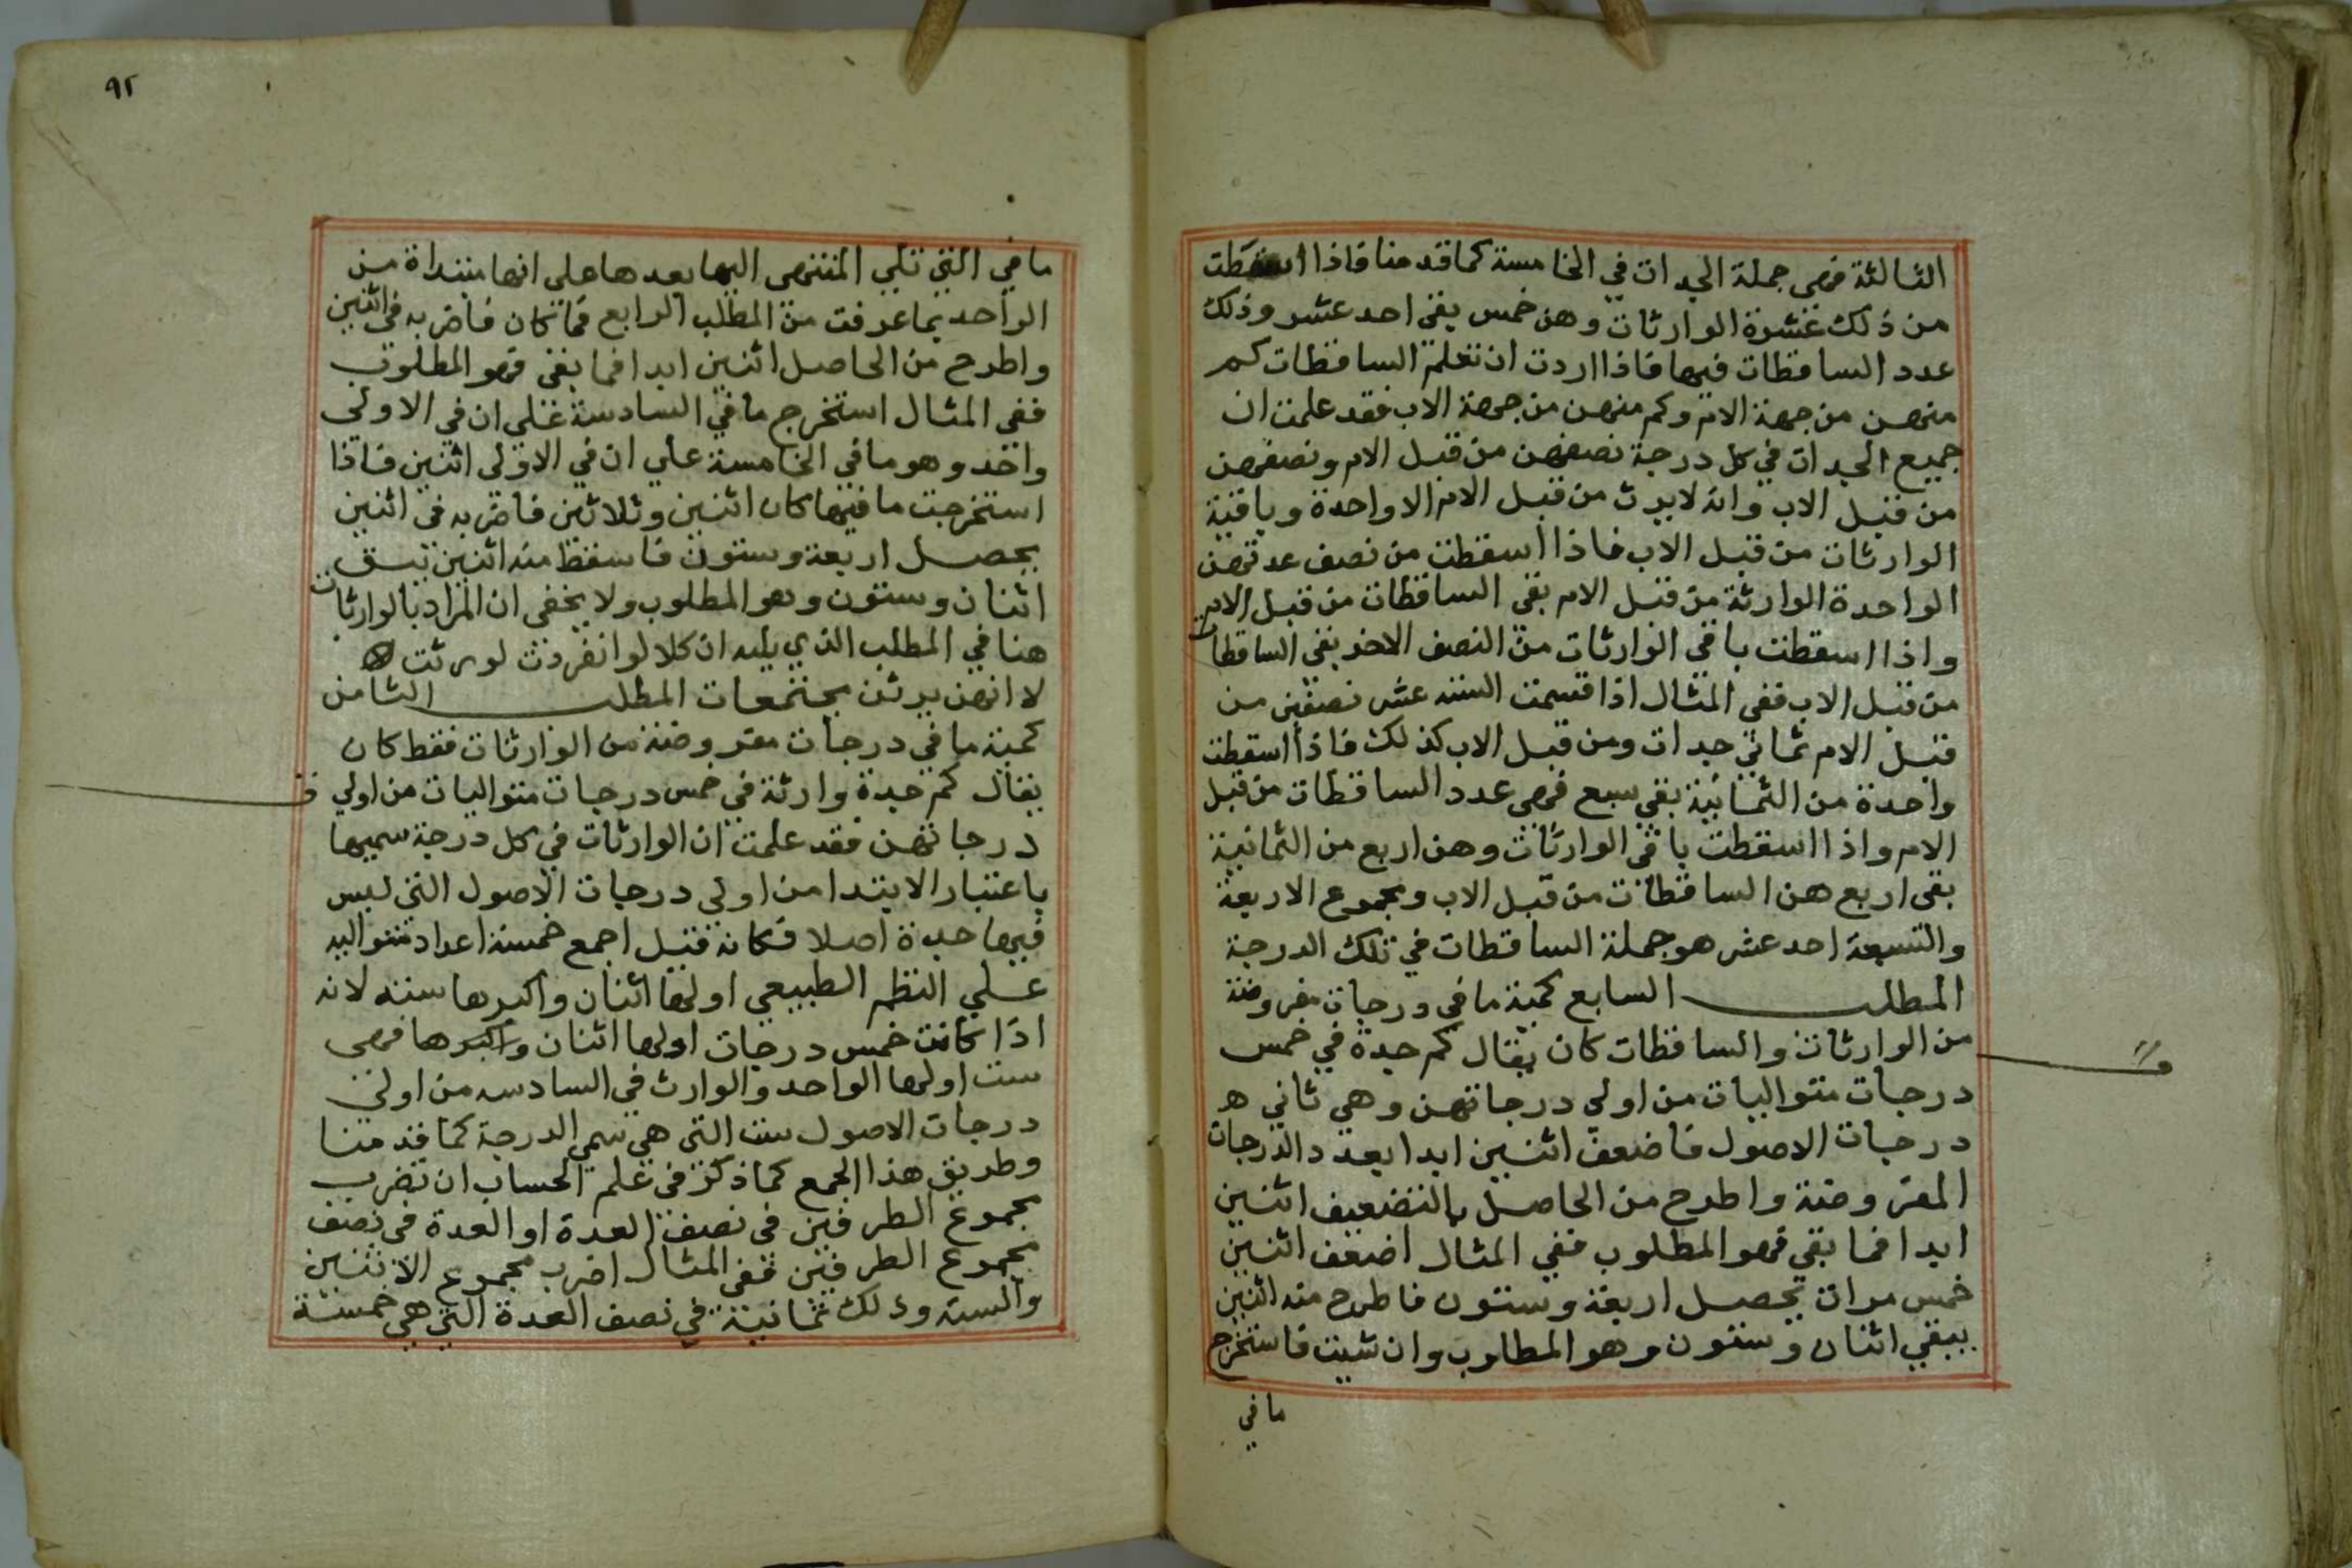 الثالثة فهى جملة الجدات في الخامسة كما قدمنا فاذا اسقطت
من ذلك عشرة الوارثات وهن خمس يبقى احد عشر وذلك
عدد الساقطات فيها فاذا اردت ان تعلم الساقطات كم
منهن من جهة الام وكم منهن من جهة الاب فقد علمت ان
جميع الجدات في كل درجة نصفهن من قبل الام ونصفهن
من قبل الاب وانه لا يرث من قبل الام الا واحدة وباقية
الوارثات من قبل الاب فاذا اسقطت من نصف عدتهن
الواحدة الوارثة من قبل الام بقى الساقطات من قبل الام
واذا اسقطت باقي الوارثات من النصف الاخر بقى الساقطات
من قبل الاب ففى المثال اذا قسمت السته عشر نصفين من
قبل الام ثماني جدات ومن قبل الاب كذلك فاذا اسقطت
واحدة من الثمانية بقي سبع فهى عدد الساقطات من قبل
الام واذا اسقطت باقى الوارثات وهن اربع من الثمانية
بقى اربع هن الساقطات من قبل الاب ومجموع الاربعة
والتسبعة احد عشر هو جملة الساقطات في تلك الدرجة
المطلب السابع كمية ما في درجات مفروضة
من الوارثات والساقطات كان يقال كم جدة في خمس
درجات متواليات من اولي درجاتهن وهي ثاني ه
درجات الاصول فاضعف اثنين ابدا بعدد الدرجات
المفروضة واطرح من الحاصل بالتضعيف اثنين
ابدا فما بقي فهو المطلوب ففي المثال اضعف اثنين
خمس مرات يحصل اربعة وستون فاطرح منه اثنين
يبقي اثنان وستون وهو المطلوب وان شيت فاستخرج
ما في
٩٢
ما في التي تلي المنتهى اليها بعدها على انها مبتداة من
الواحد بما عرفت من المطلب الرابع فما كان فاضربه في اثنين
واطرح من الحاصل اثنين ابدا فما بقى فهو المطلوب
ففي المثال استخرج ما في السادسة علي ان في الاولى
واحد وهو ما في الخامسة علي ان في الاولى اثنين فاذا
استخرجت ما فيها كان اثنين وثلاثين فاضربه في اثنين
يحصل اربعة وستون فاسقط منه اثنين يبق
اثنان وستون وهو المطلوب ولا يخفى ان المراد بالوارثات
هنا في المطلب الذي يليه ان كلا لو انفردت لورثت
لا انهن يرثن مجتمعات المطلب الثامن
كمية ما في درجات مفروضة من الوارثات فقط كان
يقال كم جدة وارثة في خمس درجات متواليات من اولي
درجاتهن فقد علمت ان الوارثات في كل درجة سميها
باعتبار الابتدا من اولى درجات الاصول التى ليس
فيها جدة اصلا فكانه قيل اجمع خمسة اعداد متواليه
علي النظم الطبيعي اولها اثنان واكبرها سته لانه
اذا كانت خمس درجات اولها اثنان واكبرها فهى
ست اولها الواحد والوارث فى السادسه من اولى
درجات الاصول ست التى هي سمي الدرجة كما قدمنا
وطريق هذا الجمع كما ذكر فى علم الحساب ان تضرب
مجموع الطرفين فى نصف العدة او العدة فى نصف
مجموع الطرفين ففى المثال اضرب مجموع الاثنين
والسته وذلك ثمانية في نصف العدة التي هي خمسة